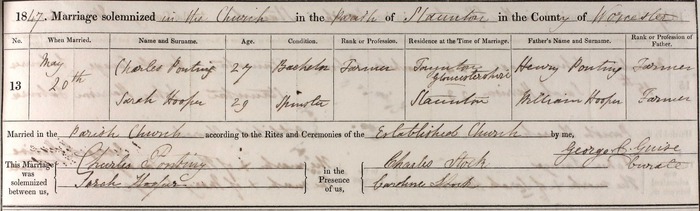 1847. Marriage solemnized in the Church in the Parish of Staunton in the County of Worcester
No. When Married. Name and Surname. Age. Condition. Rank or Profession. Residence at the Time of Marriage. Father's Name and Surname. Rank or Profession of Father.
13 May 20th Charles Ponting 27 Bachelor Farmer Taynton Gloucestershire Henry Ponting Farmer
Sarah Hooper 29 Spinster Staunton William Hooper Farmer
Married in the Parish Church according to the Rites and Ceremonies of the Established Church by me, George C. Guise Curate
This Marriage was solemnized between us, Charles Ponting Sarah Hooper in the Presence of us, Charles Stock Caroline Stock